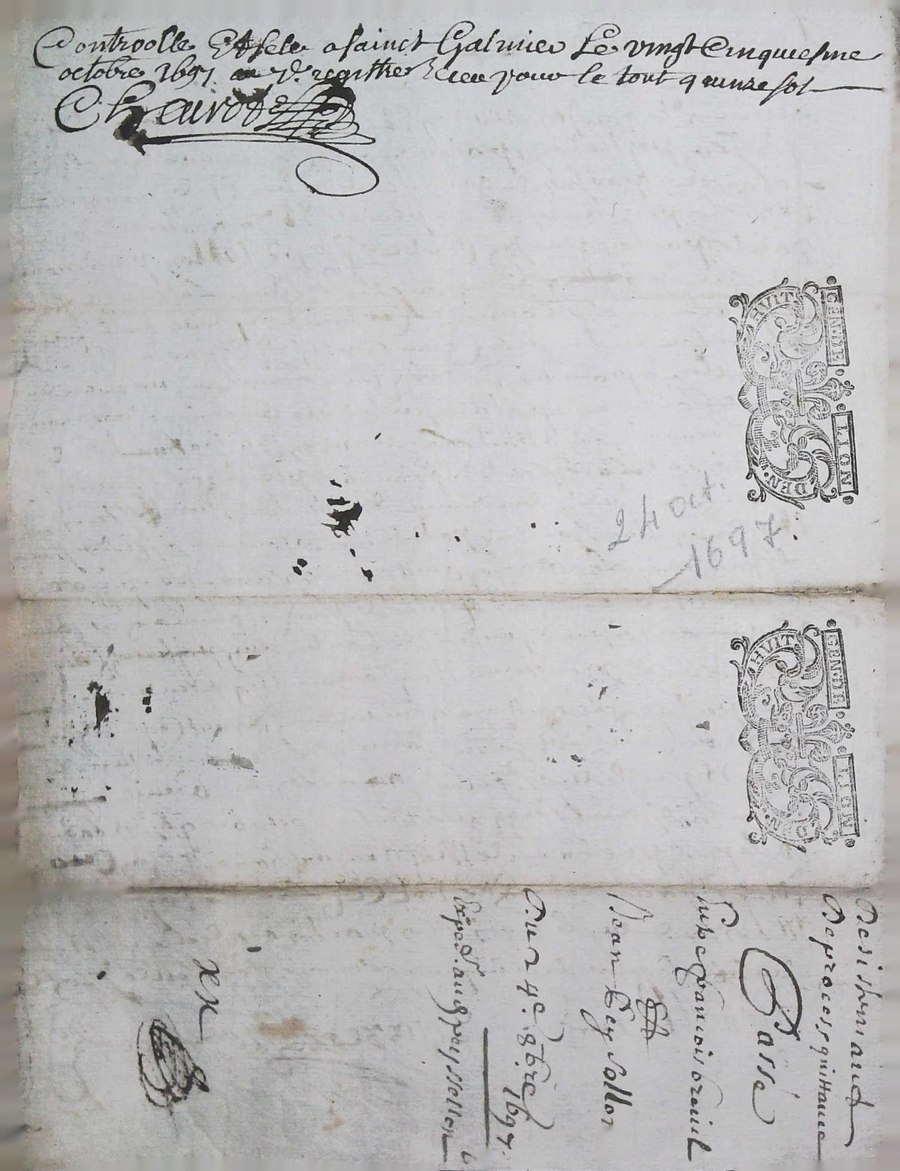 Controolle Et selle a sainct Galmier Le vingt Cinquiesme
octobre 1697 au 7e. registre Receu pour le tout quinze sol
Chairode
GEN.DE. LION
HUIT DEN.
24 oct.
1697.
GEN.DE. LION
HUIT DEN.
Desistemant
De proces, quittance
Passé
Entre francois
Et
Jean Peysellon
Du 24e. 8bre. 1697.
Exped. au d. peyssellon